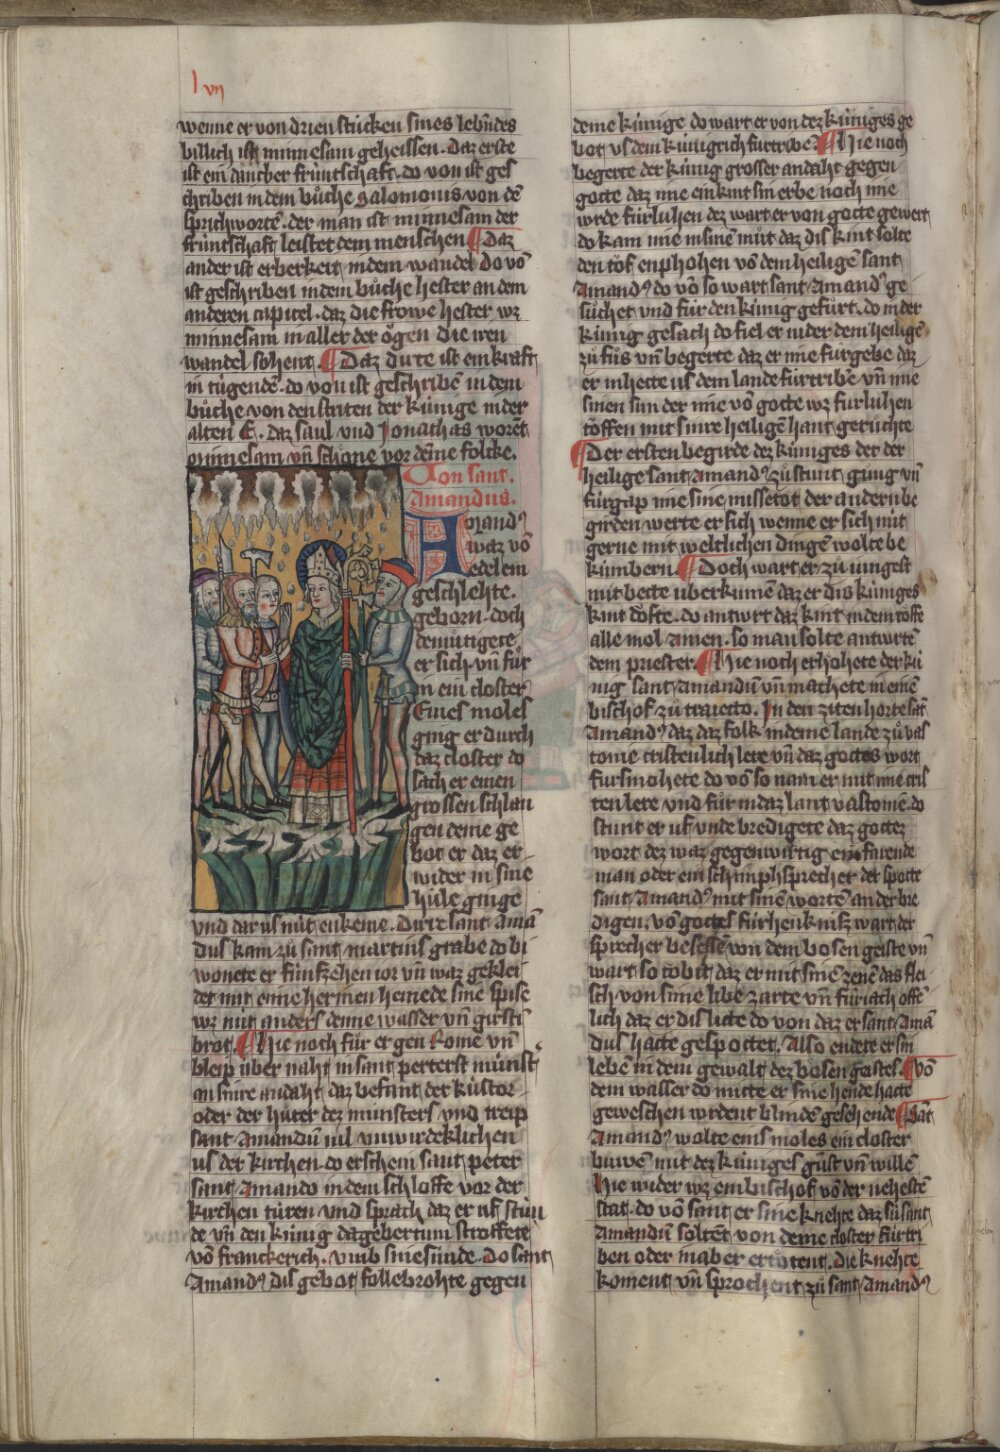 lvii
wenne er von drien stúcken sines lebēdes
billich ist minnesam geheissen. Daz erste
ist ein andber frúntschaft. do von ist ges
chriben in dem bůche salomonis von dē
sprichwortē. der man ist minnesam der
frúntschaft leistet dem menschen ¶ Daz
ander ist erberkeit in dem wandel do vō
ist geschriben in dem bůche hester an dem
anderen capitel. daz die frowe hester wz
minnesam in aller der ögen die iren
wandel sohent. ¶ Daz dirte ist ein kraft
in tugendē. do von ist geschribē in dem
bůche von den striten der kúnige in der
alten E. daz saul vnd Jonathas worēt
minnesam vñ schone vor deme folcke.
Von sant.
Amandus.
Amandꝰ
waz vō
edelem
geschlehte.
geborn. doch
demůtigete
er sich vñ fůr
in ein closter
Eines moles
ging er durch
daz closter do
sach er einen
grossen schlan
gen deme ge
bot er daz er
wider in sine
húle ginge
vnd dar us nút enkeme. Dirre sant Amā
dus kam zů sant martins grabe do bi
wonete er fúnfzehen ior vñ waz geklei
det mit eime herinen hemede sine spise
wz nút anders denne wasser vñ girsti
brot. ¶ Hie noch fůr er gen Rome vñ
bleip úber naht in sant peters múnst̉
an sinre andaht. daz befant der kústor
oder der húter dez múnsters vnd treip
sant Amandū vil vnwirdeklichen
us der kirchen. do erschein sant peter
sant Amando in dem schloffe vor der
kirchen túren vnd sprach daz er uf stůn
de vñ den kúnig dagebertum stroffete
vō franckerich. vmb sine súnde. Do sant
Amandꝰ dis gebot follebrohte gegen
deme kúnige. do wart er von dez kúniges ge
bot vs dem kúnigrich fúrtribē. ¶ Hie noch
begerte der kúnig grosser andaht gegen
gotte daz ime ein kint sin erbe noch ime
wrde fúrluhen dez wart er von gotte gewert
do kam ime in sinē můt daz dis kint solte
den töf enphohen vō dem heiligē sant
Amandꝰ do vō so wart sant Amandꝰ ge
sůchet vnd fúr den kúnig gefůrt. do in der
kúnig gesach do fiel er nider dem heiligē
zů fůs vñ begerte daz er ime furgebe daz
er in hette us dem lande fúrtribē vñ ime
sinen sun der ime vō gotte wz furluhen
töffen mit sinre heiligē hant gerůchte
¶ Der ersten begirde dez kúniges der der
heilige sant Amandꝰ zů stunt ging vñ
fúrgap ime sine missetot der andern be
girden werte er sich wenne er sich nút
gerne mit weltlichen dingē wolte be
kúmbern. ¶ Doch wart er zů iungest
mit bette úberkumē daz er dis kúniges
kint döfte. do antwrt daz kint in dem töffe
alle mol Amen. so man solte antwrtē
dem priester. ¶ Hie noch erhohete der kú
nig sant Amandū vñ machete in einē
bischof zů traiecto. In den ziten horte sāt
Amandꝰ daz daz folk in deme lande zů vas
tonie cristenlich lere vñ daz gottes wort
fúrsmohete do vō so nam er mit ime cris
ten lere vnd fůr in daz lant vastonīe. do
stunt er uf vnde bredigete daz gottez
wort dez waz gegenwirtig ein farende
man oder ein schimphsprecher der spotte
sant Amandꝰ mit sinē wortē an der bre
digen. vō gottes fúrhenknisz wart der
sprecher besessē von dem bosen geiste vñ
wart so tobit daz er mit sinē zenē das flei
sch von sinie libe zarte vñ furiach offē
lich daz er dis litte do von daz er sant Amā
dus hatte gespottet. Also endete er sin
lebē in dem gewalt dez bosen geistes. ¶ vō
dem wasser do mitte er sine hende hatte
geweschen wrdent blindē gesehende ¶ Sāt
Amandꝰ wolte eins moles ein closter
buwē mit dez kúniges gūst vñ willē
Hie wider wz ein bischof vō der nehestē
stat. do vō sant er sine knehte daz sú sant
Amandū soltēt von deme closter fúrtri
ben oder in aber ertötent. die knehte
koment vñ sprochent zů sant Amandꝰ